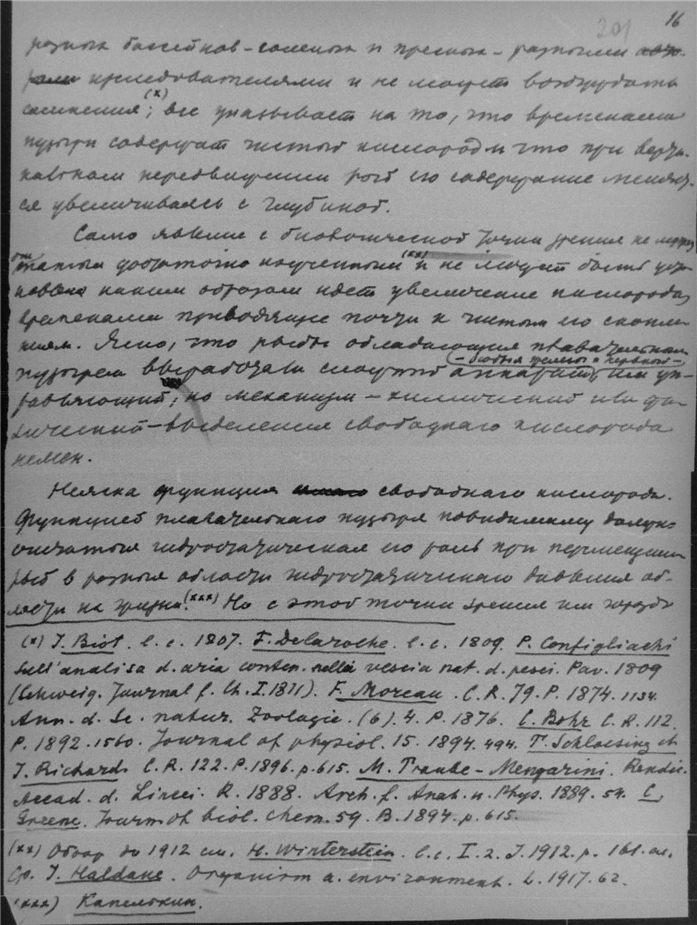 16
201
разных бассейнов - соленых и пресных - разными
исследователями и не может возбуждать
сомнения; (x) все указывает на то, что временами
пузыри содержат чистый кислород и что при верти-
кальном передвижении рыб его содержание меняет-
ся увеличиваясь с глубиной.
Само явление с биологической точки зрения не может
считаться достаточно изученным (xx) и не может быть
каким образом идет увеличение кислорода,
временами приводящее почти к чистым его скопле-
ниям. Ясно, что рыбы обладающие плавательным
- особыя железы и нервный -
пузырем выработали сложный аппарат, им уп-
равляющий; но механизм - химический или фи-
зический - выделения свободнаго кислорода
неясен.
Неясна функция свободнаго кислорода.
Функцией плавательнаго пузыря повидимому должно
считаться гидростатическая его роль при перемещении
рыб в разныя области гидростатическаго давления
(xxx) Но с этой точки зрения или гораздо
(x) J. Biot. l. c. 1807. F. Delaroche. l. c. 1809. P. Configliachi
Sull'analisa d. aria conten. nella vescia nat. d. pesci. Pav. 1809
(Schweig. Journal f. Ch. I. 1811). F. Moreau. C. R. 79. P. 1874. 1134.
Ann. d. Sc. natur. Zoologie. (6). 4. P. 1876. C. Bohr C. R. 112.
P. 1892. 1560. Journal of physiol. 15. 1894. 494. T. Schloesing et
J. Richard. C. R. 122. P. 1896. p. 615. M. Traube-Mengarini. Rendic.
Accad. d. Lincei. R. 1888. Arch. f. Anat. u. Phys. 1889. 54. C.
Greene. Journ. of biol. chem. 59. B. 1894. p. 615.
(xx) Обзор до 1912 см. H. Winterstein. l. c. I. 2. J. 1912. p. 161. сл.
Ср. J. Haldane. Organism a. environment. L. 1917. 62.
(xxx) Капелькин.